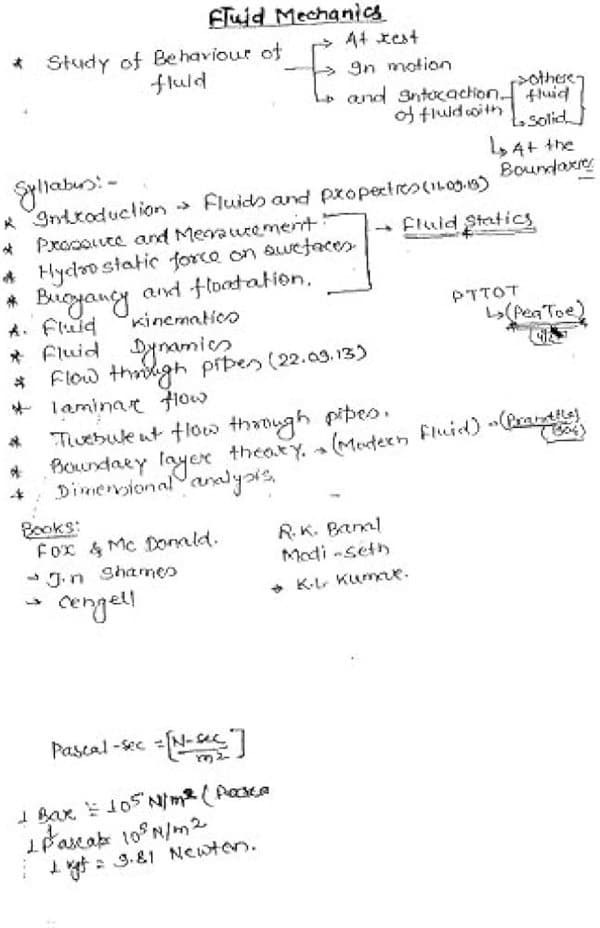 Fluid Mechanics
* Study of Behaviour of fluid
→ At rest
→ In motion
↳ and Interaction of fluid with
→ other fluid
↳ solid
↳ At the Boundaries
Syllabus:-
* Introduction → Fluids and properties (11.09.13)
* Pressure and Measurement:
* Hydrostatic force on surfaces
* Buoyancy and floatation.
→ Fluid Statics
* Fluid Kinematics
* Fluid Dynamics
* Flow through pipes (22.09.13)
* laminar flow
* Turbulent flow through pipes.
* Boundary layer theory. → (Modern Fluid) →
* Dimensional analysis.
PTTOT
↳ (Pea Toe)
Books:
Fox & Mc Donald.
→ J.n Shames
→ Cengell
R.K. Bansal
Modi - Seth
→ K.L Kumar.
Pascal-sec = [N-sec/m2]
1 Bar = 10^5 N/m2
1 Pascal= 10^5 N/m2
1 kgf = 9.81 Newton.